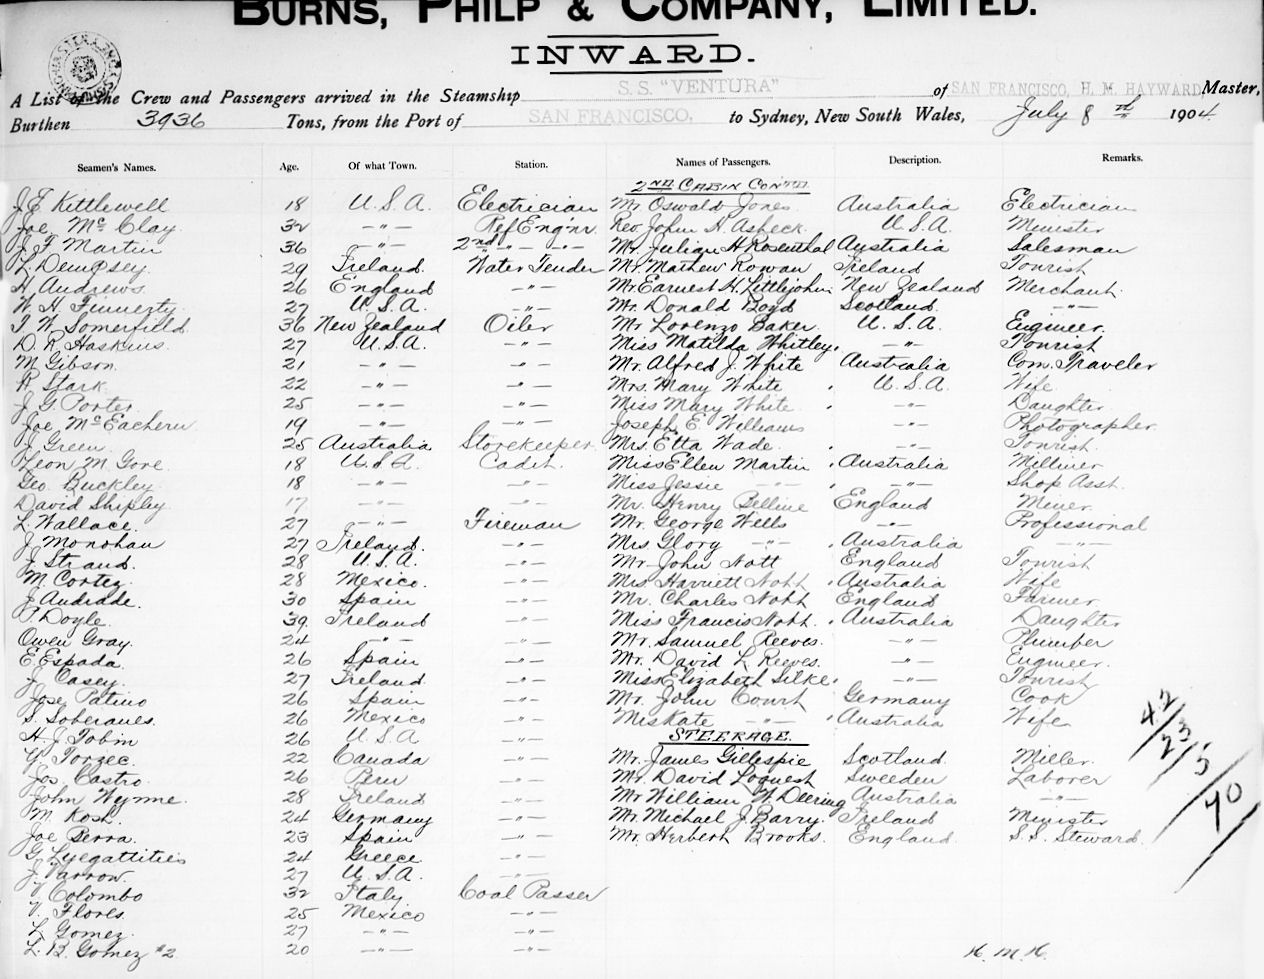 BURNS, PHILP & COMPANY, LIMITED.
INWARD.
A List of the Crew and Passengers arrived in the Steamship S.S. "VENTURA" of SAN FRANCISCO, H. M. HAYWARD, Master,
Burthen 3936 Tons, from the Port of SAN FRANCISCO, to Sydney, New South Wales, July 8th 1904.
Seamen's Names. Age. Of what Town. Station. Names of Passengers. Description. Remarks.
2ND CABIN CONTD.
J. E. Kittlewell 18 U.S.A. Electrician Mr. Oswald Jones Australia Electrician
Joe Mc Clay 32 -"- Ref Eng'nr Rev John H. Asbeck U.S.A. Minister
J. F. Martin 36 -"- 2nd -"- -"- Mr. Julian H. Rosenthal Australia Salesman
L. Dempsey 29 Ireland. Water Tender Mr. Mathew Rowan Ireland Tourist
H. Andrews 26 England -"- Mr Earnest H. Littlejohn New Zealand Merchant
W. H. Finnerty 27 U.S.A. -"- Mr. Donald Boyd Scotland -"-
T. W. Somerfield 36 New Zealand Oiler Mr Lorenzo Baker U.S.A. Engineer.
D. R. Haskins 27 U.S.A. -"- Miss Matilda Whitley -"- Tourist
M. Gibson 21 -"- -"- Mr. Alfred J. White Australia Com. Traveler
R. Stark 22 -"- -"- Mrs. Mary White U.S.A. Wife
J. G. Porter 25 -"- -"- Miss Mary White -"- Daughter
Joe McEachern 19 -"- -"- Joseph E. Williams -"- Photographer
J. Green 25 Australia Storekeeper Mrs. Etta Wade -"- Tourist
Leon M. Gove 18 U.S.A. Cadet. Miss Ellen Martin Australia Milliner
Geo. Buckley 18 -"- -"- Miss Jessie -"- -"- Shop Asst.
David Shipley 17 -"- -"- Mr. Henry Belline England Miner
L. Wallace 27 -"- Fireman Mr. George Wells -"- Professional
J. Monohan 27 Ireland. -"- Mrs Glory -"- Australia -"-
J. Strand 28 U.S.A. -"- Mr. John Nott England Tourist
M. Cortez 28 Mexico. -"- Mrs Harriett Nott Australia Wife
J. Andrade. 30 Spain -"- Mr. Charles Nott England Farmer
P. Doyle 39 Ireland -"- Miss Francis Nott Australia Daughter
Owen Gray 24 -"- -"- Mr. Samuel Reeves. -"- Plumber
E. Espada 26 Spain -"- Mr. David L. Reeves. -"- Engineer.
J. Casey 27 Ireland -"- Miss Elizabeth Silke -"- Tourist
Jose Patino 26 Spain -"- Mr. John Court Germany Cook
S. Soberanes. 26 Mexico -"- Mis Kate -"- Australia Wife
H. J. Tobin 26 U.S.A -"- STEERAGE.
Y. Torzec. 22 Canada -"- Mr. James Gillespie Scotland Miller
Jos. Castro 26 Peru -"- Mr. David Loquest Sweeden Laborer
John Wynne 28 Ireland -"- Mr William W. Deering Australia -"-
M. Kosh. 24 Germany -"- Mr. Michael J. Barry. Ireland Minister
Joe Serra. 23 Spain -"- Mr. Herbert Brooks. England S.S. Steward
G. Lyegattities 24 Greece -"-
J. Farrow 27 U.S.A. -"-
Y. Colombo 32 Italy Coal Passer
V. Flores. 25 Mexico -"-
L. Gomez 27 -"- -"-
L. B. Gomez #2 20 -"- -"-
H. M. H.
42
23
5
70